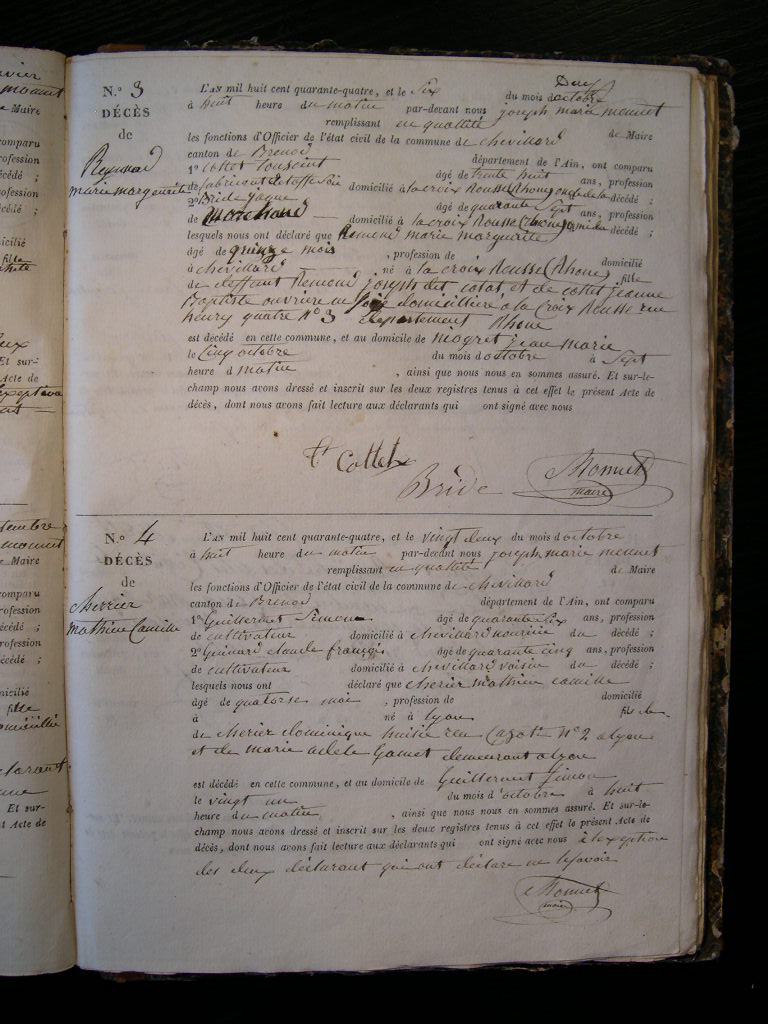 N.º 3
DÉCÈS
de
Reymond
marie marguerite
L'AN mil huit cent quarante-quatre, et le Six du mois d'octobre
à huit heure du matin par-devant nous joseph marie monnet
remplissant en quallité de Maire
les fonctions d'Officier de l'état civil de la commune de chevillard
canton de Brenod département de l'Ain, ont comparu
1º Cottet Toussint âgé de trente huit ans, profession
de fabricant detoffe Soie domicilié à la croix Rousse (Rhone) oncle de la décédé ;
2º Bride jaque âgé de quarante Sept ans, profession
de Marchand domicilié à la croix Rousse (Rhone) ami du décédé ;
lesquels nous ont déclaré que Remond marie marguerite
âgé de quinze mois , profession de domicilié
à chevillard né à la croix Rousse (Rhone) fille
de deffunt Remond joseph dit catat et de cottet jeanne
Baptiste ouvrière en Soie domicillière a la croix Rousse rue
henry quatre Nº 3 departement Rhone
est décédé en cette commune, et au domicile de mogret jean marie
le Cinq octobre du mois d'octobre à Sept
heure d matin , ainsi que nous nous en sommes assuré. Et sur-le-
champ nous avons dressé et inscrit sur les deux registres tenus à cet effet le présent Acte de
décès, dont nous avons fait lecture aux déclarants qui ont signé avec nous
Cottet
Bride
Monnet
maire
N.º 4
DÉCÈS
de
cherrier
mathieu Camille
L'AN mil huit cent quarante-quatre, et le vingt deux du mois d'octobre
à huit heure du matin par-devant nous joseph marie monnet
remplissant en quallité de Maire
les fonctions d'Officier de l'état civil de la commune de chevillard
canton de Brenod département de l'Ain, ont comparu
1º Guillermet Simon âgé de quarante Six ans, profession
de cultivateur domicilié à chevillard nourricie du décédé ;
2º Guinard claude françois âgé de quarante cinq ans, profession
de cultivateur domicilié à chevillard voisin du décédé ;
lesquels nous ont déclaré que cherier mathieu camille
âgé de quatorse moi , profession de domicilié
à né à lyon fils de
de cherier dominique huitie rue Nº 2 a lyon
et de marie adele Gamet demeurant a lyon
est décédé en cette commune, et au domicile de Guillermet Simon
le vingt un du mois d'octobre à huit
heure du matin , ainsi que nous nous en sommes assuré. Et sur-le-
champ nous avons dressé et inscrit sur les deux registres tenus à cet effet le présent Acte de
décès, dont nous avons fait lecture aux déclarants qui ont signé avec nous à lexeption
des deux déclarant qui ont déclaré ne le savoir
Monnet
maire